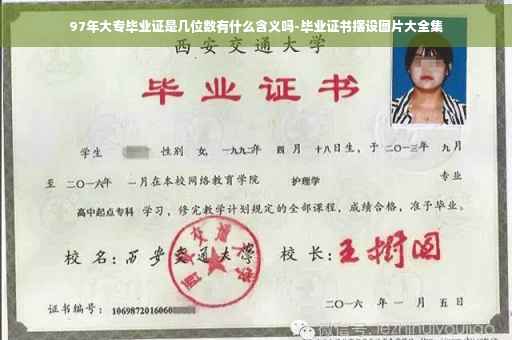 97年大专毕业证是几位数有什么含义吗-毕业证书摆设图片大全集
西安交通大学
毕业证书
学生 性别 女, 一九九二年 四月 十八日生, 于二〇一三年 九月
至 二〇一六年 一月在本校网络教育学院 护理学 专业
高中起点专科 学习, 修完教学计划规定的全部课程, 成绩合格, 准予毕业。
校名: 西安交通大学 校长: 王树国
西安交通大学
证书编号: 1069872016060
二〇一六 年 一 月 五 日
微信号: jiezhihuiyoujiao